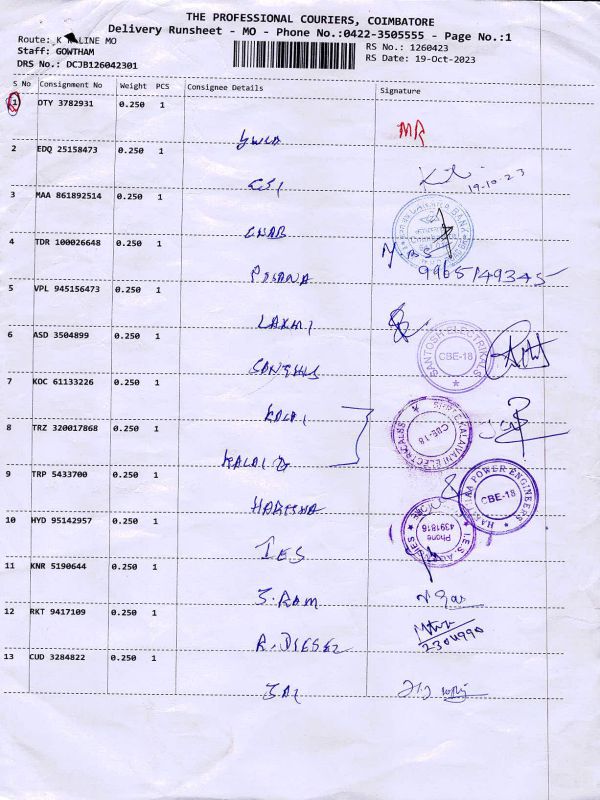 THE PROFESSIONAL COURIERS, COIMBATORE
Delivery Runsheet - MO - Phone No.:0422-3505555 - Page No.:1
Route: K LINE MO
RS No.: 1260423
Staff: GOWTHAM
RS Date: 19-Oct-2023
DRS No.: DCJB126042301
S No Consignment No Weight PCS Consignee Details Signature
1 OTY 3782931 0.250 1
MR
2 EDQ 25158473 0.250 1
CSI
19.10.23
3 MAA 861892514 0.250 1
CNAB
4 TDR 100026648 0.250 1
9965149345
5 VPL 945156473 0.250 1
LAXMI
SANTOSH ELECTRIKALS
CBE-18
6 ASD 3504899 0.250 1
SANTHUS
7 KOC 61133226 0.250 1
KALAI
8 TRZ 320017868 0.250 1
KALAI
SHREE KALAIVANI ELECTRICALSS
CBE-18
9 TRP 5433700 0.250 1
HARSHA
POWER ENGINEERS
CBE-18
10 HYD 95142957 0.250 1
IES
I.E.S.
Phone
4391816
11 KNR 5190644 0.250 1
S.RAM
12 RKT 9417109 0.250 1
R.DIESEL
2304990
13 CUD 3284822 0.250 1
SAI